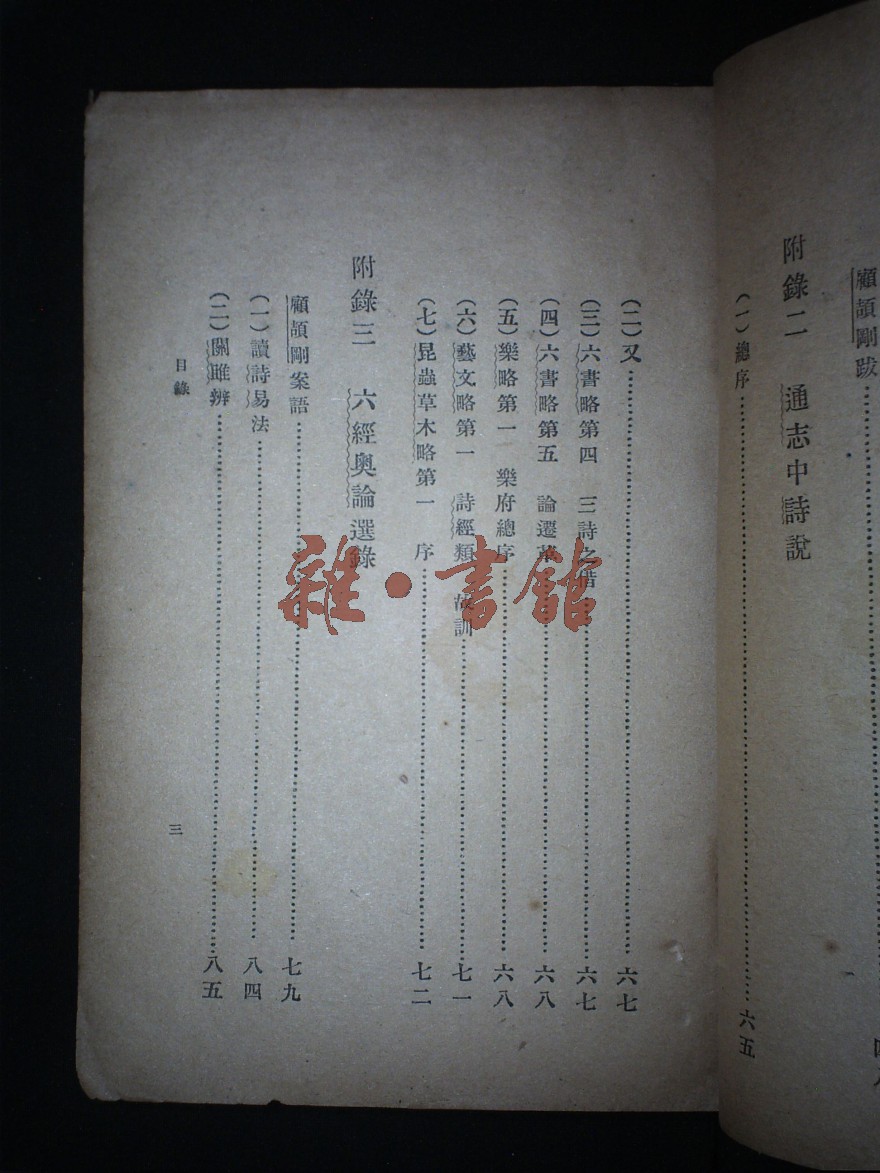 顧頡剛跋
附錄二　通志中詩說
(一)總序……六五
(二)又……六七
(三)六書略第四　三詩之借……六七
(四)六書略第五　論遷革……六八
(五)樂略第一　樂府總序……六八
(六)藝文略第一　詩經類　故訓……七一
(七)昆蟲草木略第一　序……七二
附錄三　六經奧論選錄
顧頡剛案語……七九
(一)讀詩易法……八四
(二)關雎辨……八五
目錄
三
雜·書館